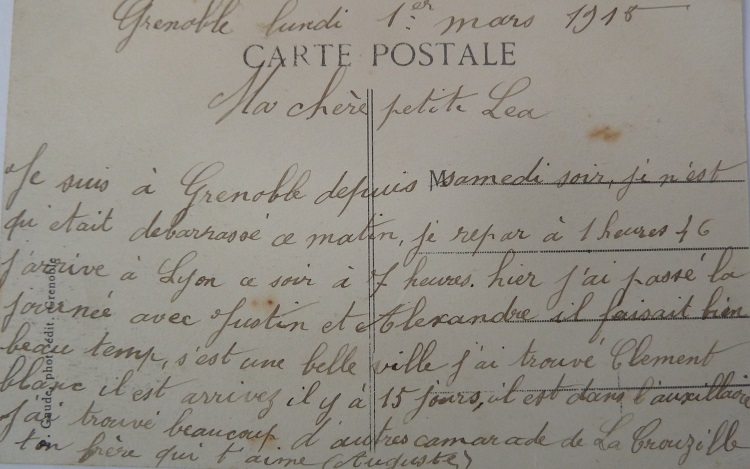 Grenoble lundi 1.er mars 1915
CARTE POSTALE
Ma chère petite Lea
M
Je suis à Grenoble depuis samedi soir, je n'est
qu'etait debarrassé ce matin, je repar à 1 heures 46
j'arrive à Lyon ce soir à 7 heures. hier j'ai passé la
journée avec Justin et Alexandre il faisait bien
beau temp, s'est une belle ville j'ai trouvé Clement
blanc il est arrivez il y à 15 jours, il est dans l'auxillaire
j'ai trouvé beaucoup d'autres camarade de La Crouzille
ton frère qui t'aime (Auguste)
Gaude, phot. édit. Grenoble